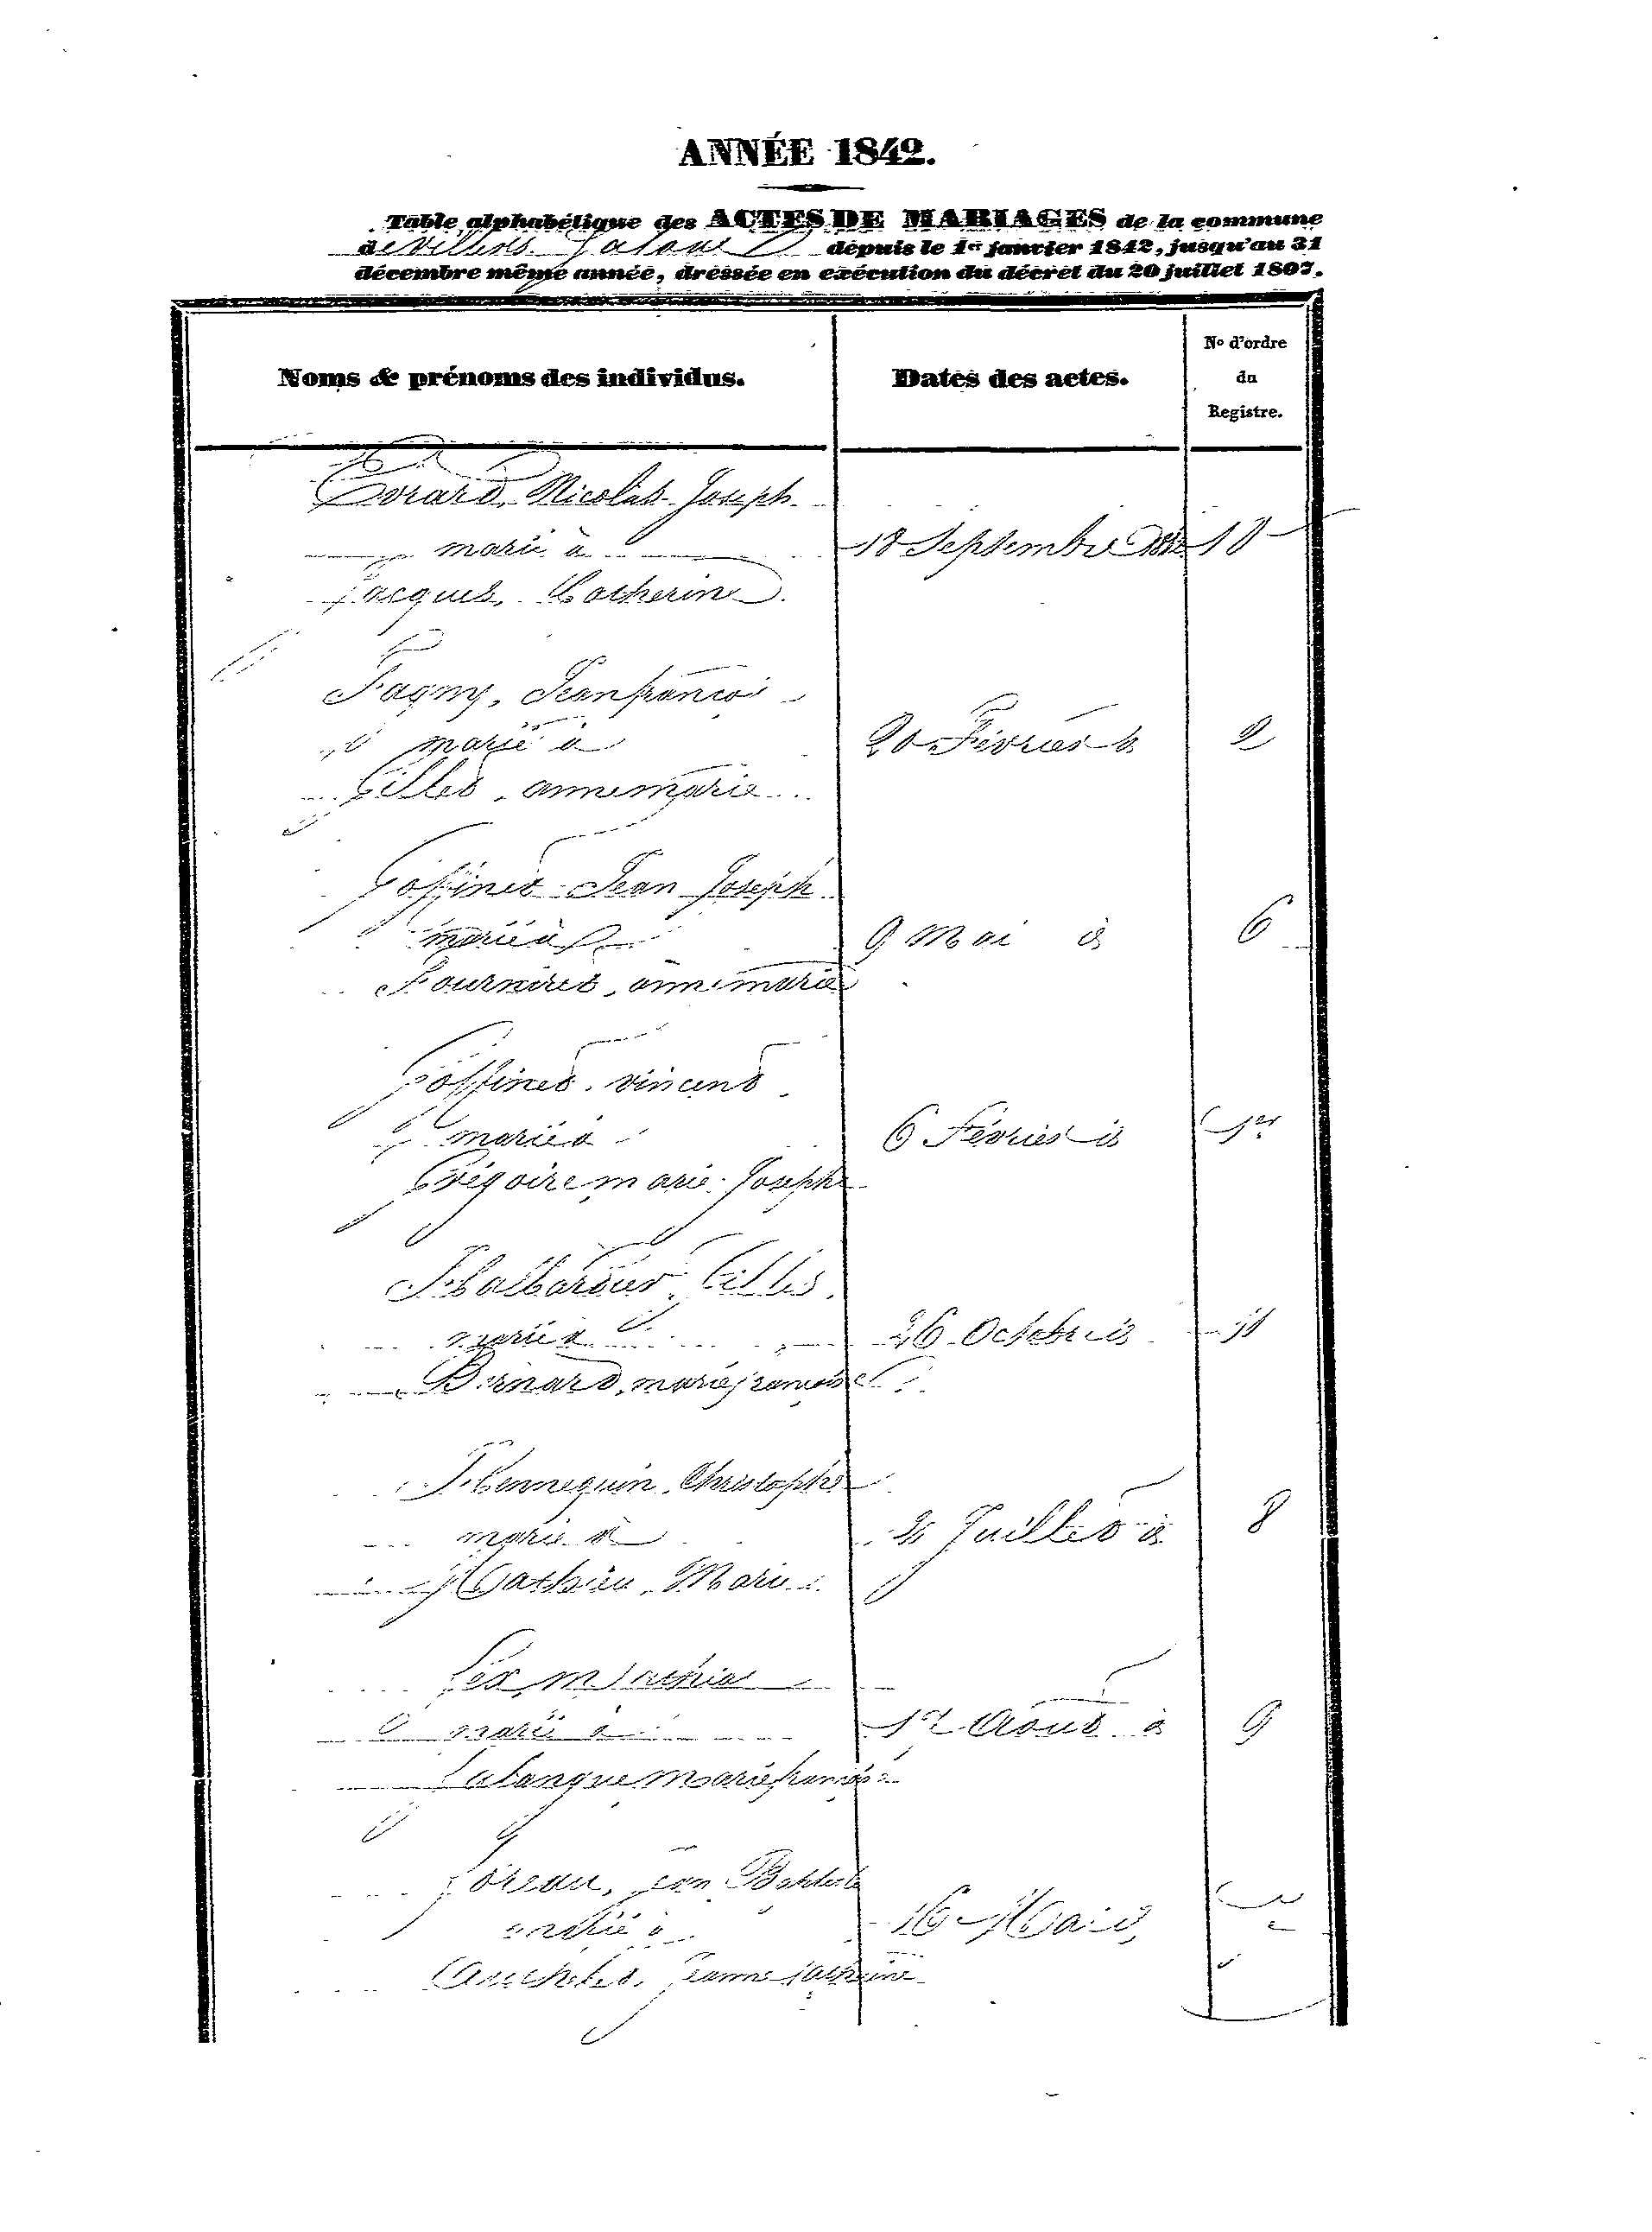 ANNÉE 1842.
Table alphabétique des ACTES DE MARIAGES de la commune
de Villers depuis le 1er janvier 1842, jusqu'au 31
décembre même année, dressée en exécution du décret du 20 juillet 1807.
Noms & prénoms des individus.
Dates des actes.
No d'ordre
du
Registre.
Evrard, Nicolas Joseph
marié à
18 Septembre
10
Jacques, Catherine
Fagny, Jean françois
marié à
20 Février
2
Gilles, anne marie
Goffinet Jean Joseph
marié à
9 Mai
6
Fourniret, anne marie
Goffinet vincent
marié à
6 Février
1er
Grégoire marie Joseph
Gilles
marié à
26 Octobre
11
Bernard, marie françoise
Hennequin, Christophe
marié à
Juillet
8
Mathieu, Marie
Mathias
marié à
17 Août
9
Lalangue marie françoise
Goreau, jean Baptiste
marié à
16 Mai
Jeanne Catherine